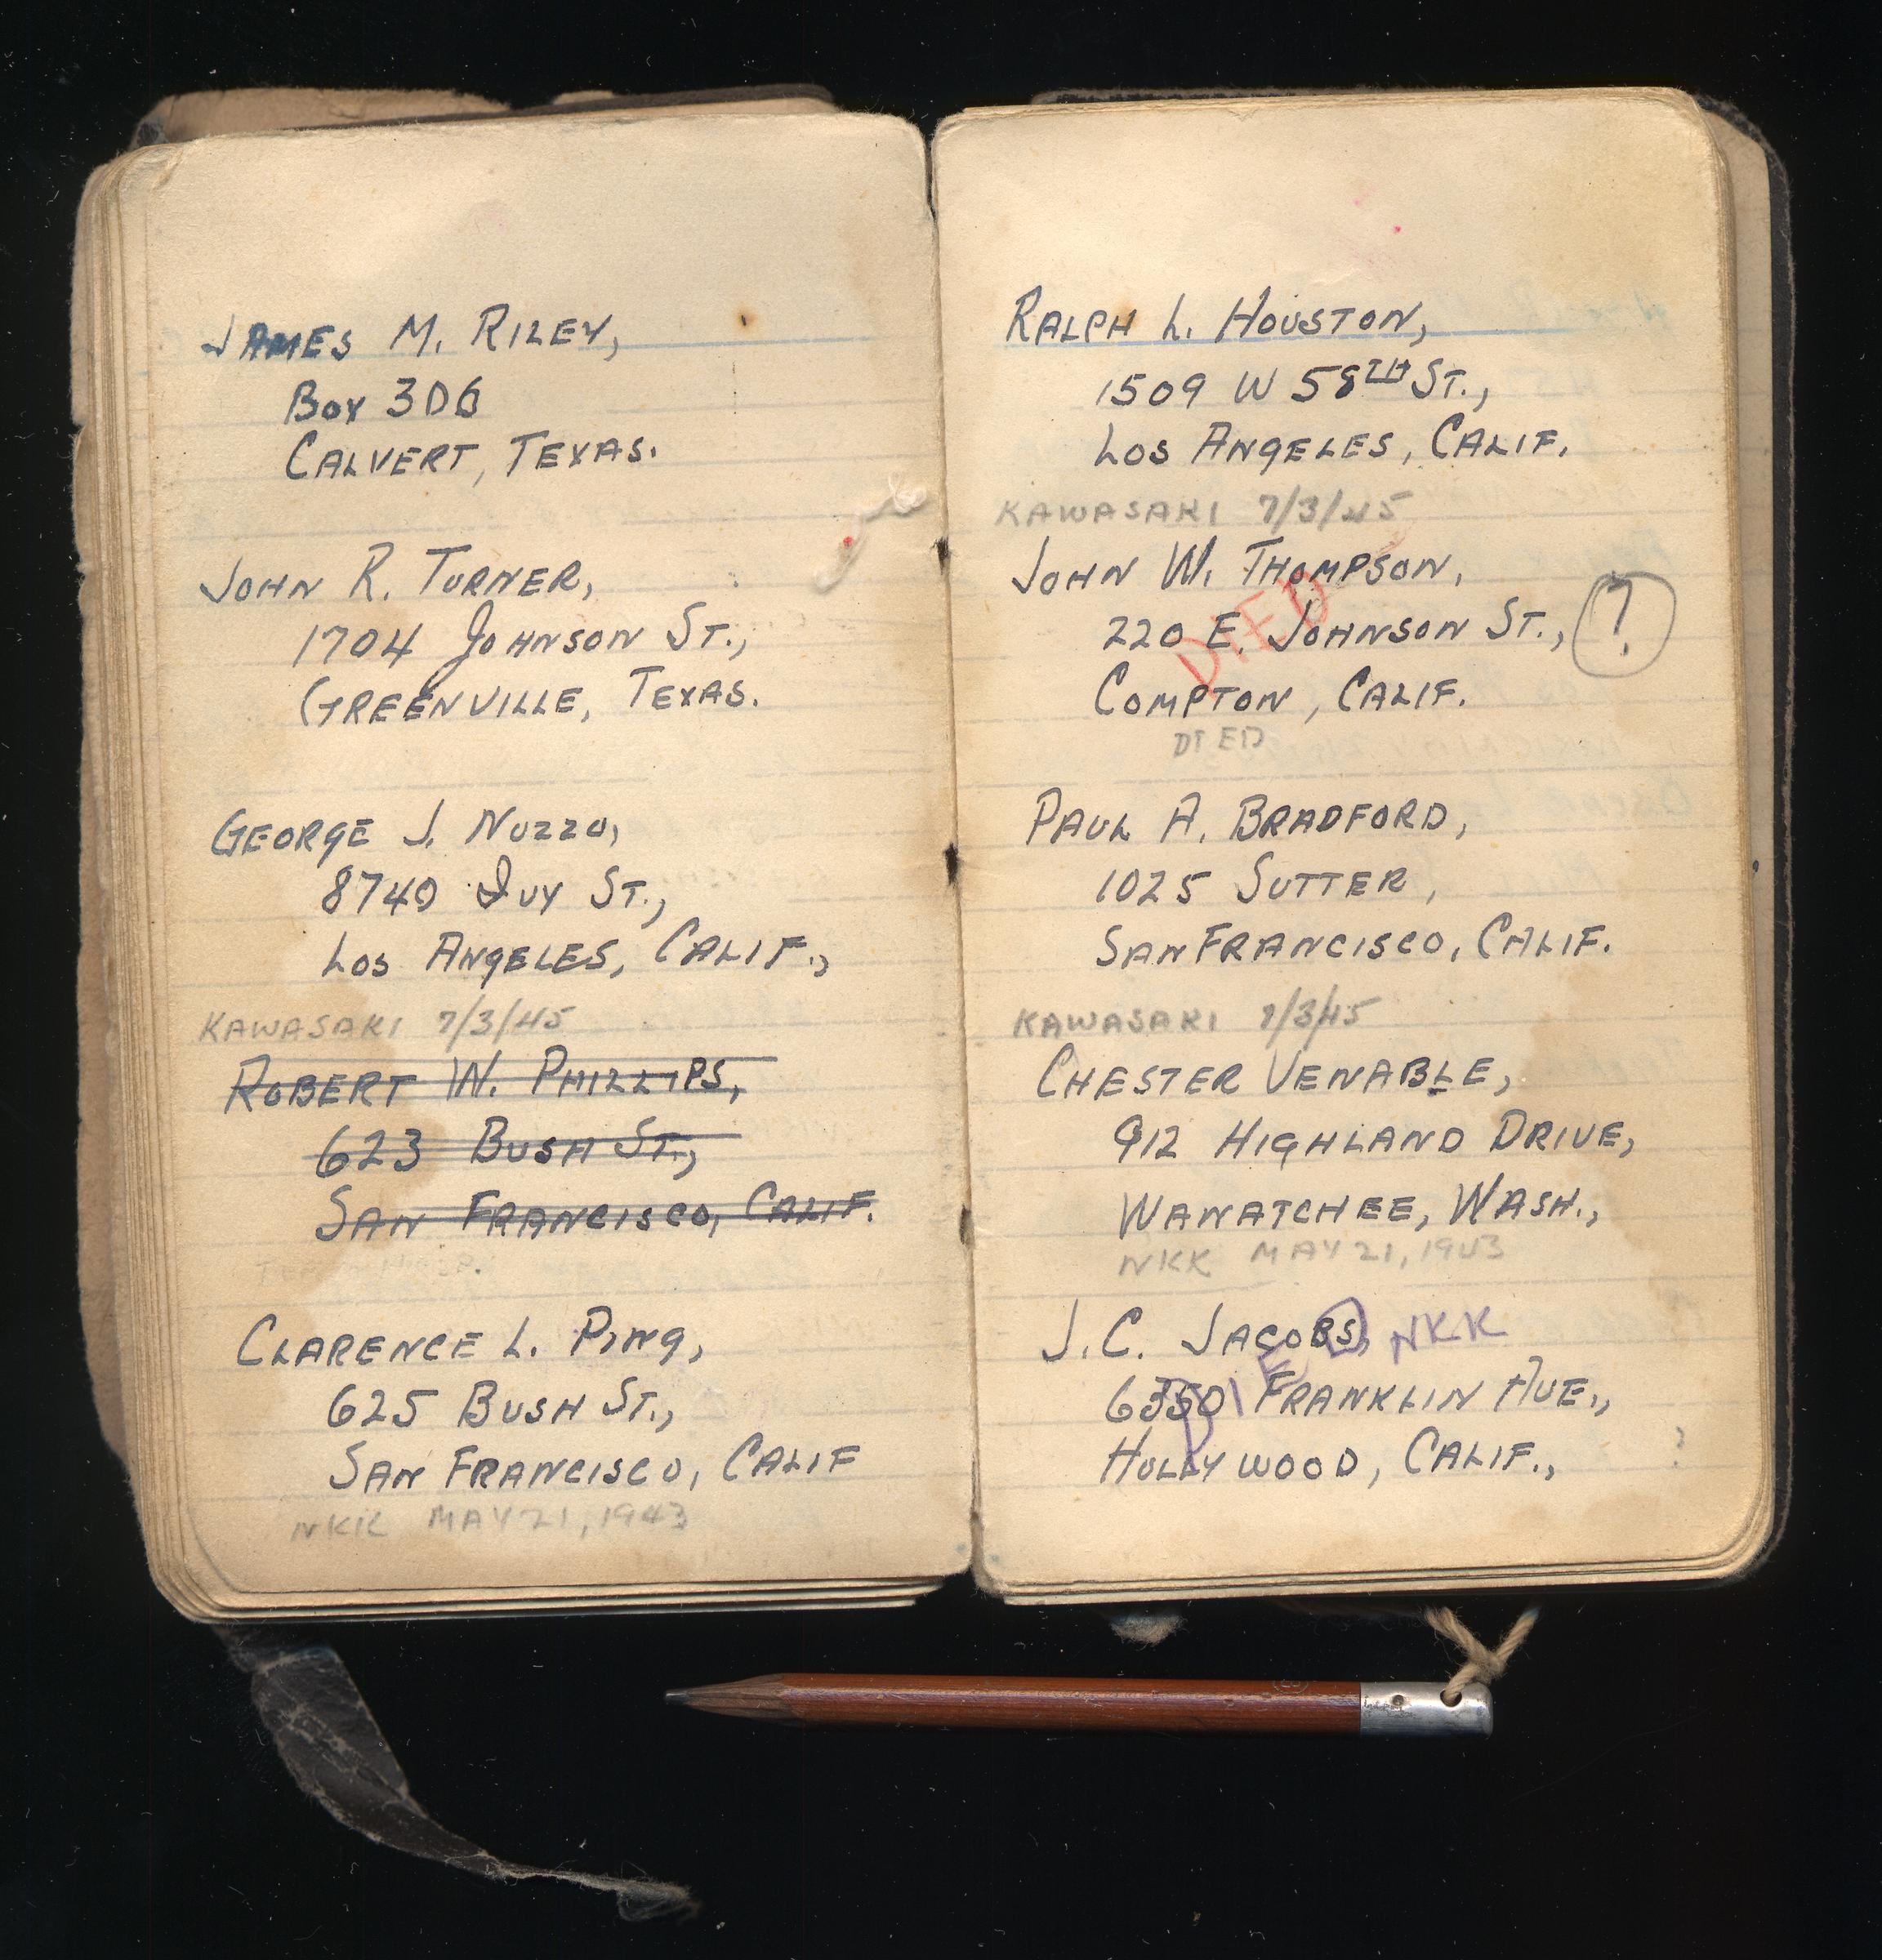 JAMES M. RILEY,
BOX 306
CALVERT, TEXAS.
JOHN R. TURNER,
1704 JOHNSON ST.,
GREENVILLE, TEXAS.
GEORGE J. NUZZO,
8740 IVY ST.,
LOS ANGELES, CALIF.,
KAWASAKI 7/3/45
ROBERT W. PHILLIPS,
623 BUSH ST.,
SAN FRANCISCO, CALIF.
CLARENCE L. PING,
625 BUSH ST.,
SAN FRANCISCO, CALIF
NKK MAY 21, 1943
RALPH L. HOUSTON,
1509 W 58TH ST.,
LOS ANGELES, CALIF.
KAWASAKI 7/3/45
JOHN W. THOMPSON,
DIED
220 E. JOHNSON ST., ?
COMPTON, CALIF.
DIED
PAUL A. BRADFORD,
1025 SUTTER,
SAN FRANCISCO, CALIF.
KAWASAKI 7/3/45
CHESTER VENABLE,
912 HIGHLAND DRIVE,
WANATCHEE, WASH.,
NKK MAY 21, 1943
J. C. JACOBS, NKK
DIED
6350 FRANKLIN AVE.,
HOLLYWOOD, CALIF.,
?